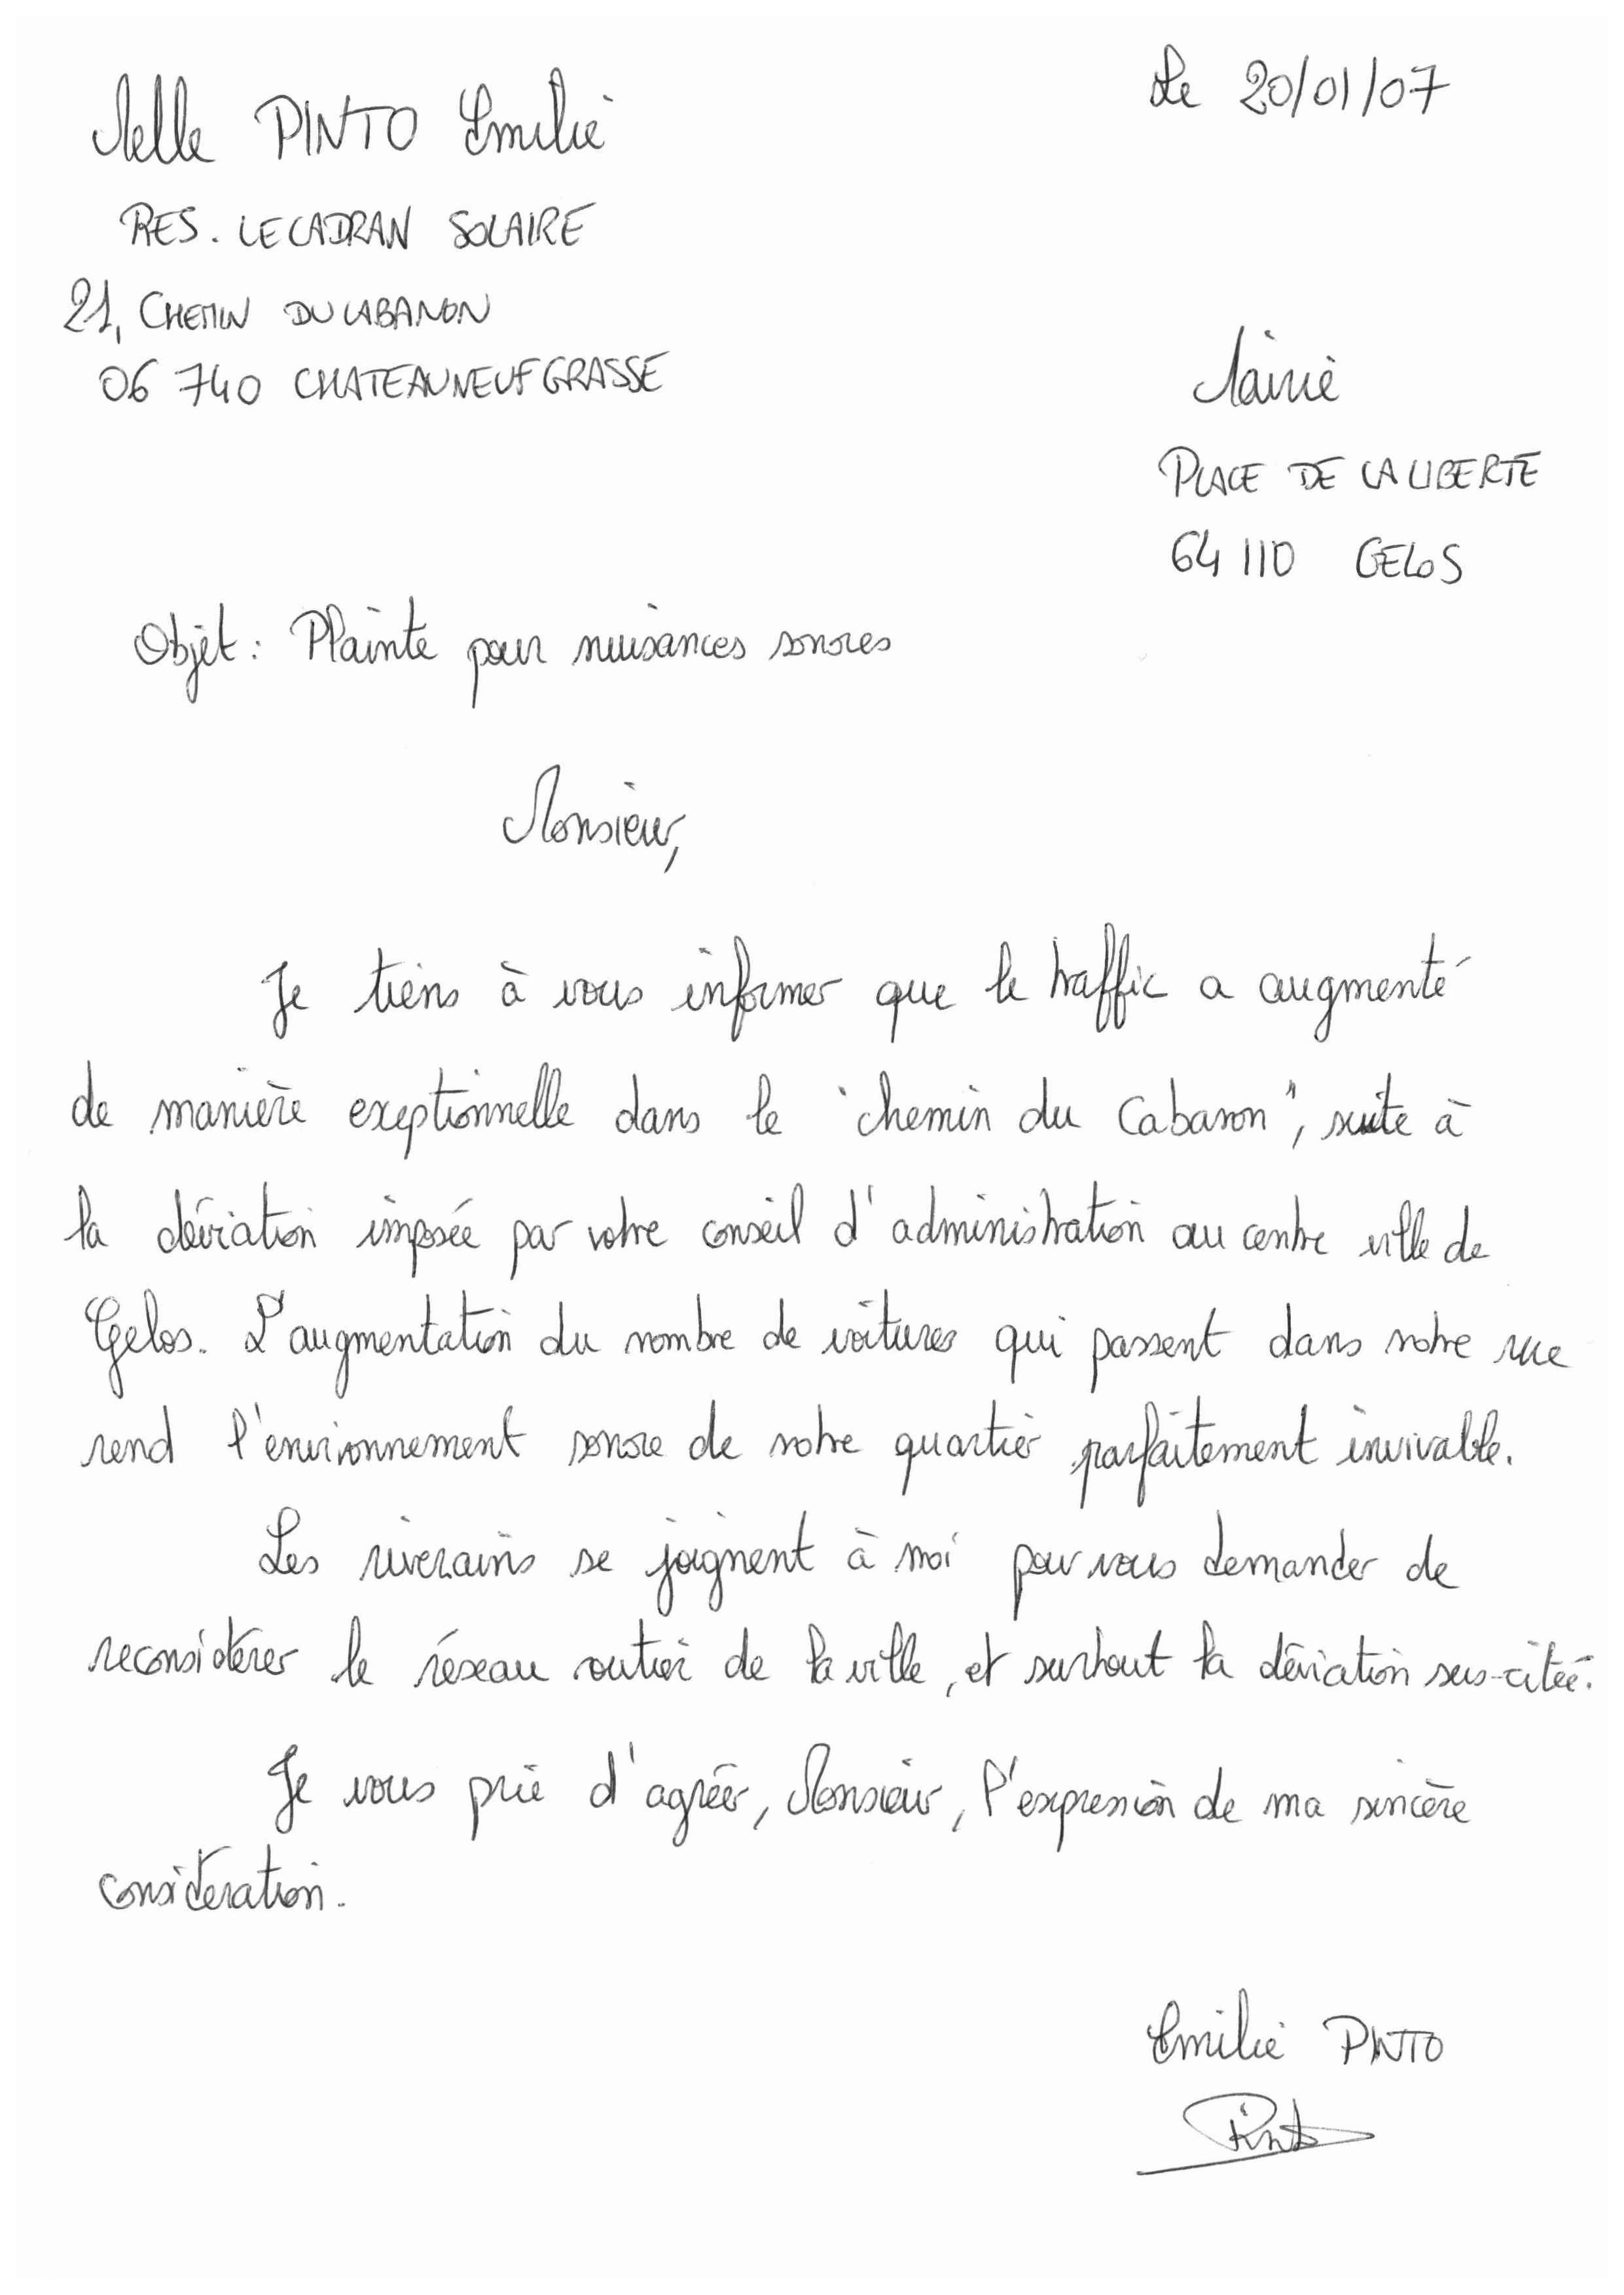 Melle PINTO Emilie
Le 20/01/07
RES. LE CADRAN SOLAIRE
21, CHEMIN DU CABANON
06 740 CHATEAUNEUF GRASSE
Mairie
PLACE DE LA LIBERTE
64 110 GELOS
Objet : Plainte pour nuisances sonores
Monsieur,
Je tiens à vous informer que le traffic a augmenté
de manière exeptionnelle dans le "chemin du Cabanon", suite à
la déviation imposée par votre conseil d'administration au centre ville de
Gelos. L'augmentation du nombre de voitures qui passent dans notre rue
rend l'environnement sonore de notre quartier parfaitement invivable.
Les riverains se joignent à moi pour vous demander de
reconsidérer le réseau routier de la ville, et surtout la déviation sus-citée.
Je vous prie d'agréer, Monsieur, l'expression de ma sincère
considération.
Emilie PINTO
Pinto